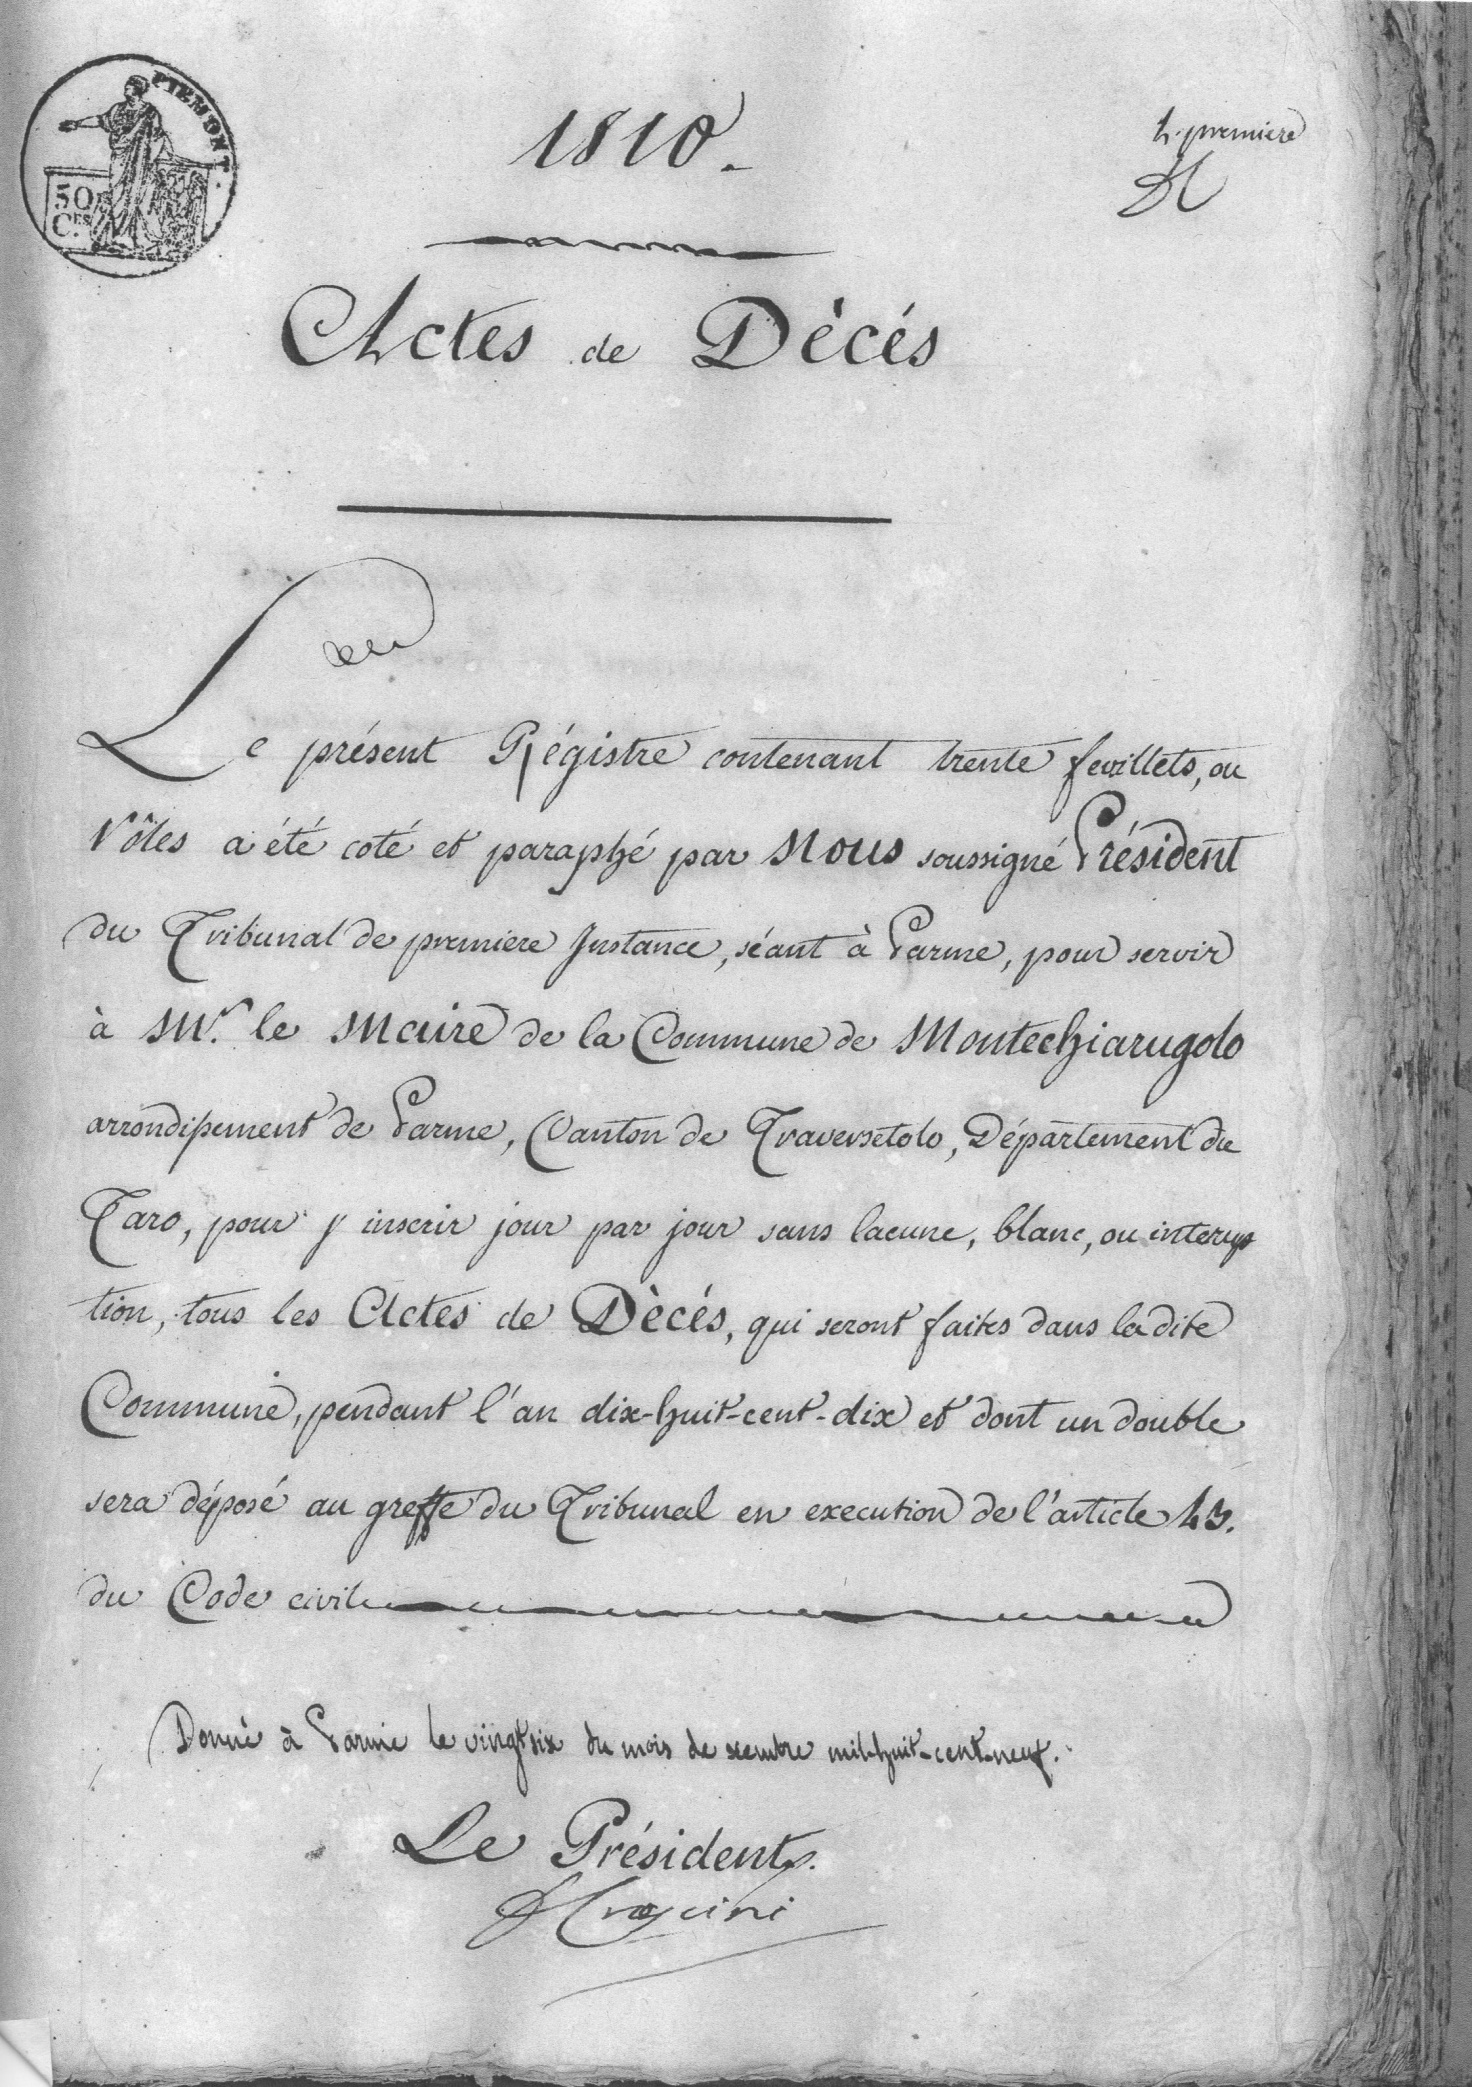 PIEMONT.
50
C.ES
1810.
premiere
Actes de Dècés
Le présent Régistre contenant trente feuillets, ou
rôles a été coté et paraphé par Nous soussigné Président
du Tribunal de premiere Instance, séant à Parme, pour servir
à Mr. le Maire de la Commune de Montechiarugolo
arrondissement de Parme, Canton de Traversetolo, Département du
Taro, pour y inscrir jour par jour sans lacune, blanc, ou interup
tion, tous les Actes de Dècés, qui seront faites dans la dite
Commune, pendant l'an dix-huit-cent-dix et dont un double
sera déposé au greffe du Tribunal en execution de l'article 43.
du Code civil
Donné à Parme le vingt six du mois de xcembre mil-huit-cent-neuf.
Le Président